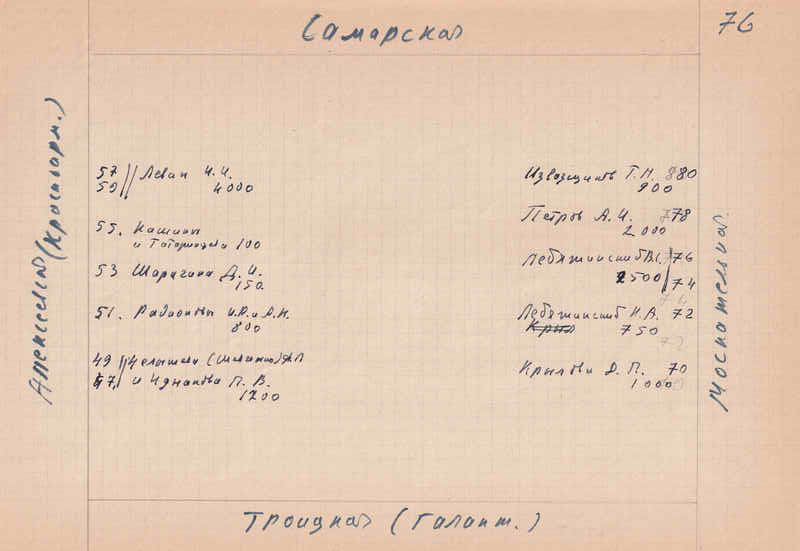 Самарская
76
Алексеевская (Красноарм.)
57 Леван И.И.
59 4000
55. Кашины
и Татаринцева 100
53 Шарагина Д. И.
150.
51. Радионовы И.В. и А.И.
800
49 Челышева
47. и Иднакова П. В.
1200
Извозщиков Т. М. 80
900
Петров А. И. 78
2 000
Лебяжинский В. 76
2500 74
Лебяжинский И. А. 72
750
Крылова Д. П. 70
1 000
Москательная
Троицкая (Галант.)